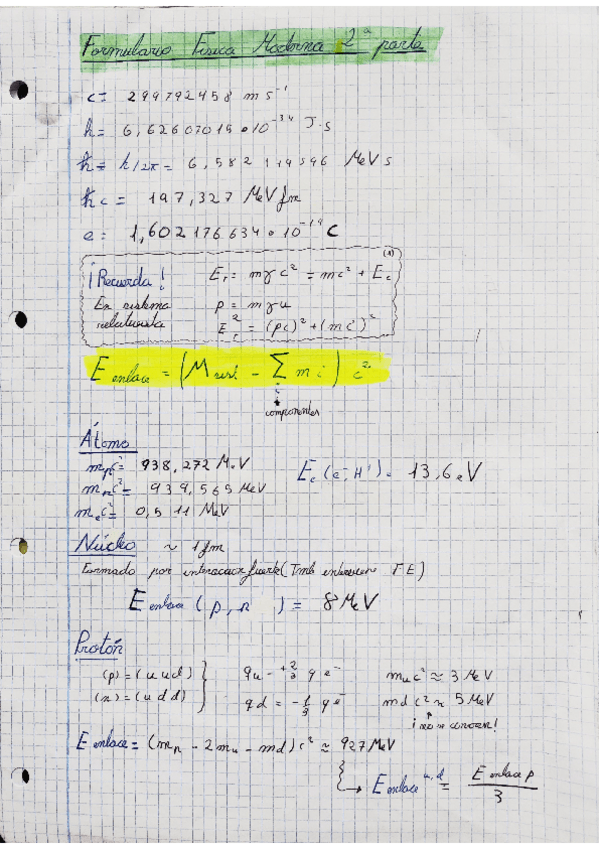 Formulario Física Moderna 2ª parte
c = 299792458 m s⁻¹
h = 6,62607015·10⁻³⁴ J·s
ħ = h/2π = 6,582 119 596 MeV s
ħc = 197,327 MeV fm
e = 1,602 176 634·10⁻¹⁹ C
(1)
¡Recuerda! E_r = mγc² = mc² + E_c
En sistema p = mγu
relativista E_r² = (pc)² + (mc²)²
E enlace = (M - Σ m i) c²
i
componentes
Átomo
m_p c² = 938,272 MeV
E_e (e⁻; H¹) = 13,6 eV
m_n c² = 939,565 MeV
m_e c² = 0,511 MeV
Núcleo ~ 1 fm
Formado por interaccion fuerte (Tmb interviene FE)
E enlace (p, n) = 8 MeV
Protón
(p) = (u u d) } q u = +2/3 q e⁻ m u c² ≈ 3 MeV
(n) = (u d d) q d = -1/3 q e⁻ m d c² ≈ 5 MeV
¡no se conocen!
E enlace = (m_p - 2m_u - m_d) c² ≈ 927 MeV
→ E enlace u,d = E enlace p / 3